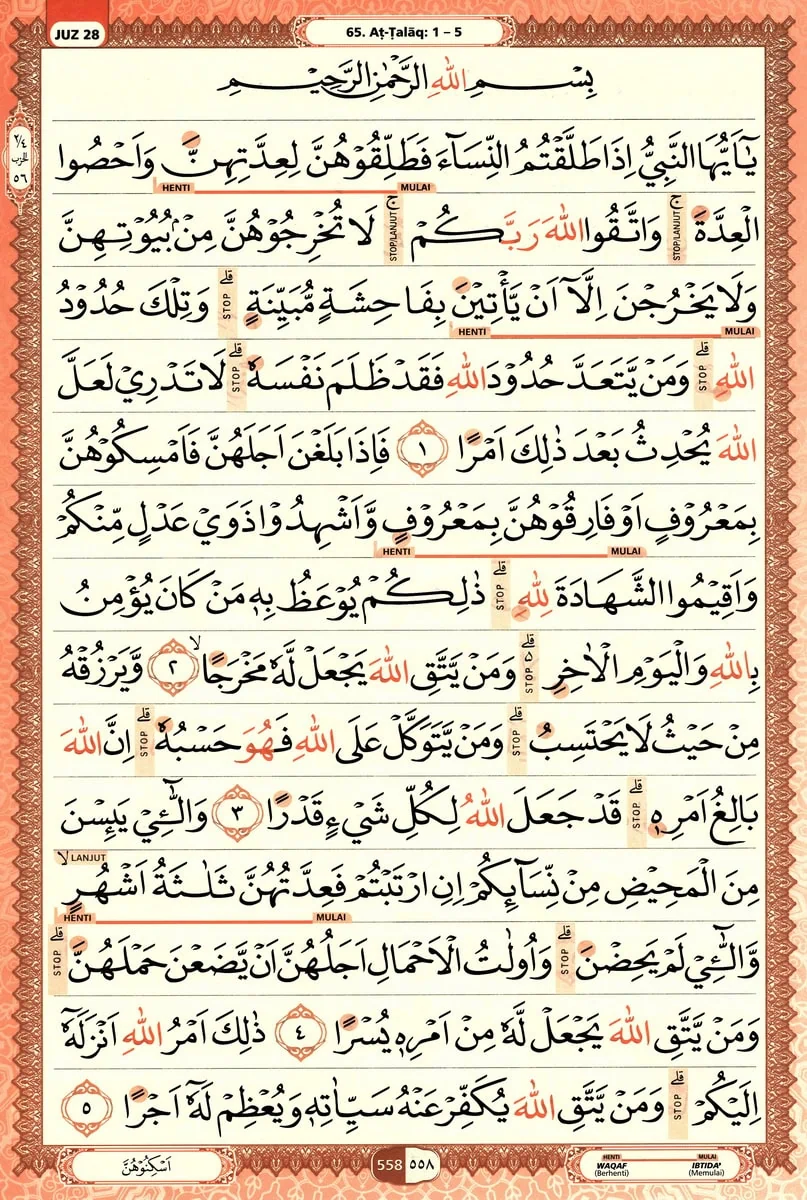 JUZ 28
65. Aṭ-Ṭalāq: 1 – 5
٢/٤
الحزب
٥٦
بِسْمِ اللّٰهِ الرَّحْمٰنِ الرَّحِيْمِ
يٰٓاَيُّهَا النَّبِيُّ اِذَا طَلَّقْتُمُ النِّسَاۤءَ فَطَلِّقُوْهُنَّ لِعِدَّتِهِنَّ وَاَحْصُوا
HENTI MULAI
الْعِدَّةَۚ وَاتَّقُوا اللّٰهَ رَبَّكُمْۚ لَا تُخْرِجُوْهُنَّ مِنْۢ بُيُوْتِهِنَّ
STOP/LANJUT STOP/LANJUT
وَلَا يَخْرُجْنَ اِلَّآ اَنْ يَّأْتِيْنَ بِفَاحِشَةٍ مُّبَيِّنَةٍۗ وَتِلْكَ حُدُوْدُ
STOP HENTI MULAI
اللّٰهِۗ وَمَنْ يَّتَعَدَّ حُدُوْدَ اللّٰهِ فَقَدْ ظَلَمَ نَفْسَهٗۗ لَا تَدْرِيْ لَعَلَّ
STOP STOP
اللّٰهَ يُحْدِثُ بَعْدَ ذٰلِكَ اَمْرًا ١ فَاِذَا بَلَغْنَ اَجَلَهُنَّ فَاَمْسِكُوْهُنَّ
بِمَعْرُوْفٍ اَوْ فَارِقُوْهُنَّ بِمَعْرُوْفٍ وَّاَشْهِدُوْا ذَوَيْ عَدْلٍ مِّنْكُمْ
HENTI MULAI
وَاَقِيْمُوا الشَّهَادَةَ لِلّٰهِۗ ذٰلِكُمْ يُوْعَظُ بِهٖ مَنْ كَانَ يُؤْمِنُ
STOP
بِاللّٰهِ وَالْيَوْمِ الْاٰخِرِۗ وَمَنْ يَّتَّقِ اللّٰهَ يَجْعَلْ لَّهٗ مَخْرَجًا ٢ ۙ وَّيَرْزُقْهُ
STOP
مِنْ حَيْثُ لَا يَحْتَسِبُۗ وَمَنْ يَّتَوَكَّلْ عَلَى اللّٰهِ فَهُوَ حَسْبُهٗۗ اِنَّ اللّٰهَ
STOP STOP
بَالِغُ اَمْرِهٖۗ قَدْ جَعَلَ اللّٰهُ لِكُلِّ شَيْءٍ قَدْرًا ٣ وَالّٰۤـِٔيْ يَىِٕسْنَ
STOP
مِنَ الْمَحِيْضِ مِنْ نِّسَاۤىِٕكُمْ اِنِ ارْتَبْتُمْ فَعِدَّتُهُنَّ ثَلٰثَةُ اَشْهُرٍۙ
LANJUT HENTI MULAI
وَّالّٰۤـِٔيْ لَمْ يَحِضْنَۗ وَاُولٰتُ الْاَحْمَالِ اَجَلُهُنَّ اَنْ يَّضَعْنَ حَمْلَهُنَّۗ
STOP STOP
وَمَنْ يَّتَّقِ اللّٰهَ يَجْعَلْ لَّهٗ مِنْ اَمْرِهٖ يُسْرًا ٤ ذٰلِكَ اَمْرُ اللّٰهِ اَنْزَلَهٗٓ
اِلَيْكُمْۗ وَمَنْ يَّتَّقِ اللّٰهَ يُكَفِّرْ عَنْهُ سَيِّاٰتِهٖ وَيُعْظِمْ لَهٗٓ اَجْرًا ٥
STOP
اَسْكِنُوْهُنَّ
558 ٥٥٨
HENTI MULAI
WAQAF IBTIDA'
(Berhenti) (Memulai)